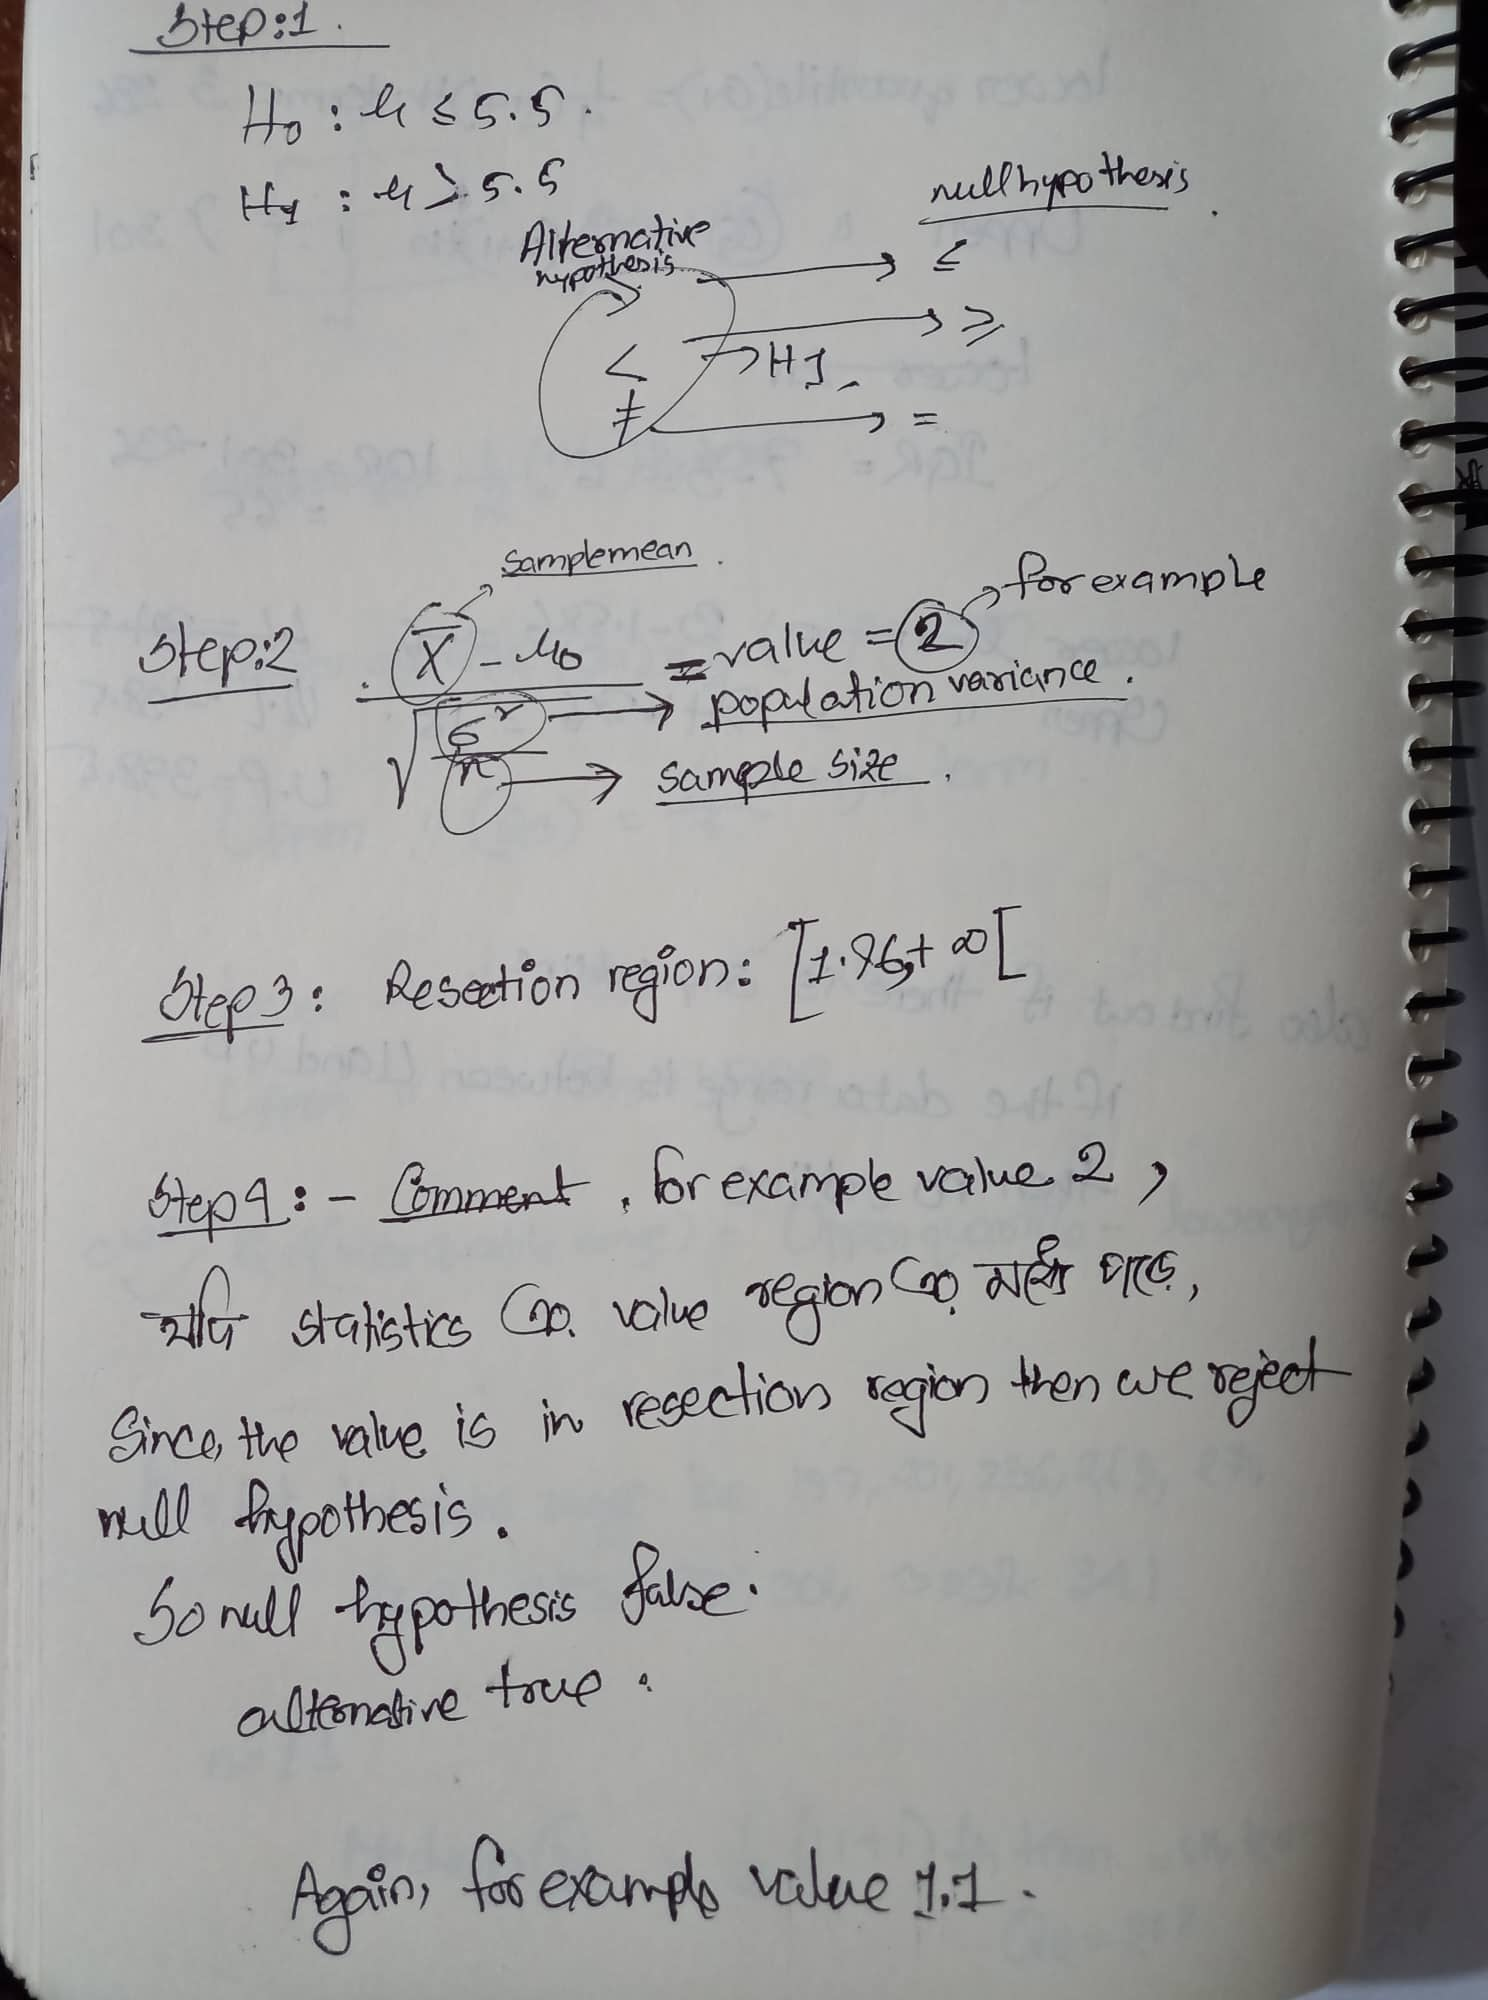 Step:1.
H₀ : μ ≤ 5.5.
H₁ : μ > 5.5
Alternative hypothesis
null hypothesis
→ ≤
< → ≥
→ H1
≠ → =
Samplemean
Step:2 X̄ - μ₀ = value = 2 → for example
√ σ² → population variance.
n → sample size.
Step 3: Resection region: [1.96, +∞[
Step 4: - Comment, for example value 2,
যদি statistics এর value region এর মধ্যে পড়ে,
Since, the value is in resection region then we reject
null hypothesis.
So null hypothesis false.
alternative true.
Again, for example value 1.1.